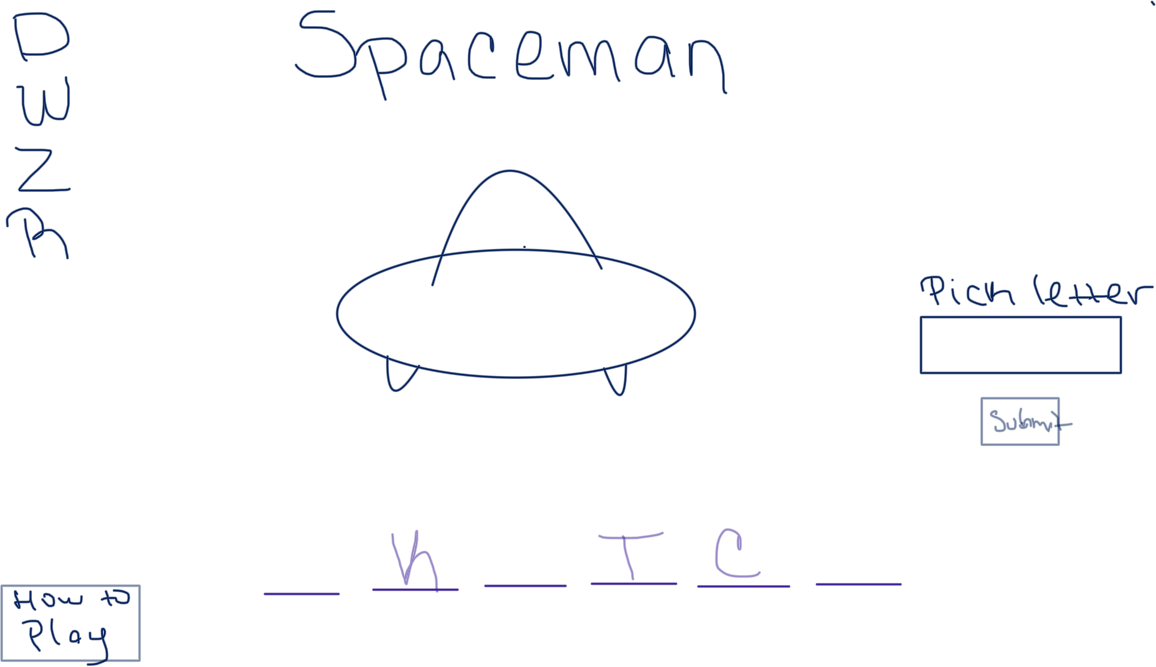 Spaceman
D
W
Z
R
Pick letter
Submit
K T C
How to
Play